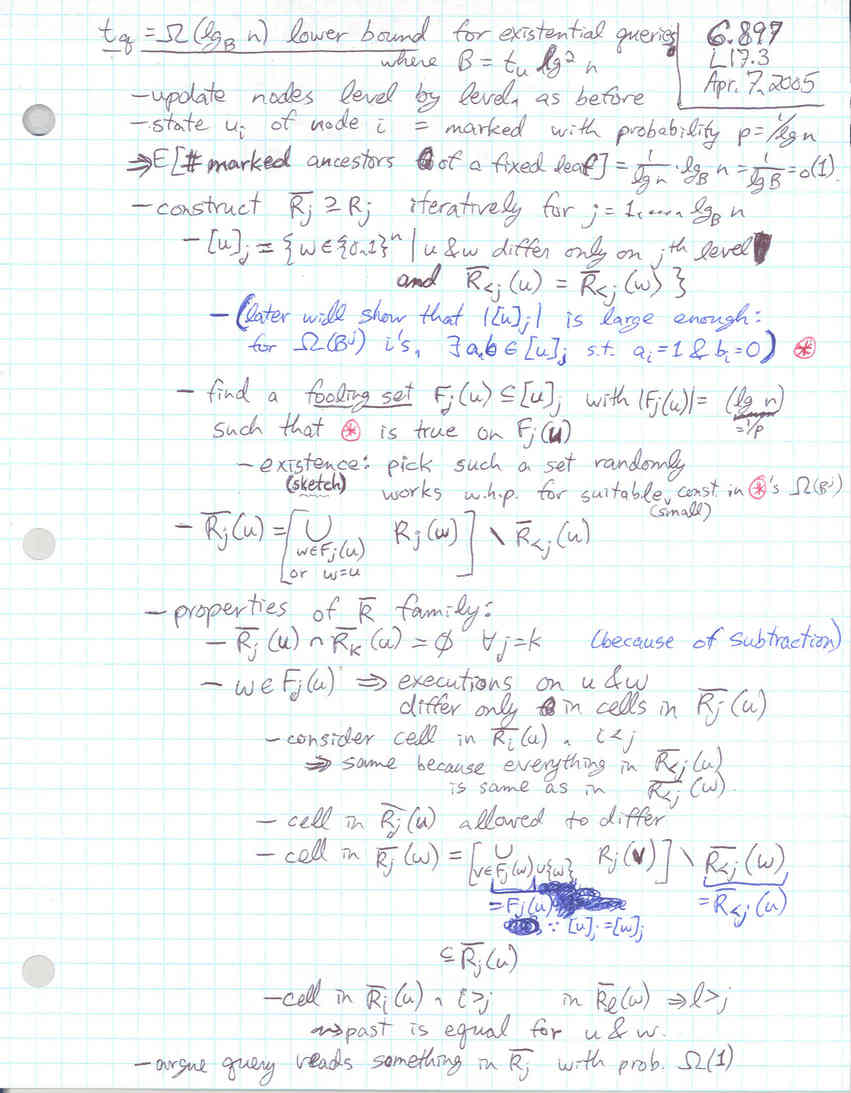 t_q = Ω(lg_B n) lower bound for existential queries
6.897
where B = t_u lg² n
L17.3
Apr. 7, 2005
- update nodes level by level, as before
- state u_i of node i = marked with probability p = 1/lg n
⇒ E[# marked ancestors of a fixed leaf] = 1/lg n · lg_B n = 1/lg B = o(1).
- construct R̄_j ⊇ R_j iteratively for j = 1,..., lg_B n
- [u]_j = {w ∈ {0,1}^n | u & w differ only on j^th level
and R̄_<j(u) = R̄_<j(w)}
- (later will show that |[u]_j| is large enough:
for Ω(B^j) i's, ∃ a,b ∈ [u]_j s.t. a_i = 1 & b_i = 0) ⊛
- find a fooling set F_j(u) ⊆ [u]_j with |F_j(u)| = (lg n)
=1/p
such that ⊛ is true on F_j(u)
- existence: pick such a set randomly
(sketch) works w.h.p. for suitable, const. in ⊛'s Ω(B^j)
(small)
- R̄_j(u) = [∪ R_j(w)] \ R̄_<j(u)
w∈F_j(u)
or w=u
- properties of R̄ family:
- R̄_j(u) ∩ R̄_k(u) = ∅ ∀ j=k (because of subtraction)
- w ∈ F_j(u) ⇒ executions on u & w
differ only in cells in R̄_j(u)
- consider cell in R̄_i(u), i<j
⇒ same because everything in R̄_<j(u)
is same as in R̄_<j(w).
- cell in R̄_j(u) allowed to differ
- cell in R̄_j(w) = [∪ R_j(v)] \ R̄_<j(w)
v∈F_j(w)∪{w}
= F_j(u)
= R̄_<j(u)
∵ [u]_j = [w]_j
⊆ R̄_j(u)
- cell in R̄_i(u), i>j in R̄_ℓ(w) ⇒ ℓ>j
⇝ past is equal for u & w.
- argue query reads something in R̄_j with prob. Ω(1)